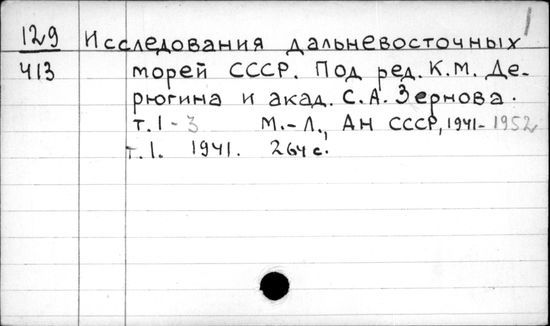 129 Исследования дальневосточных
413 морей СССР. Под ред. К.М. Де-
рюгина и акад. С.А. Зернова.
т. 1 - 3 М.-Л., АН СССР, 1941-1952
т. 1. 1941. 264 с.